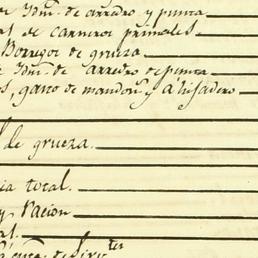 de Idm. de arredro y punta
al de carneros primales
Borregos de grueza
e Idm. de arredro de punta
os, gano de mandon y añisadero
l de grueza.
ia total.
y Racion
al.